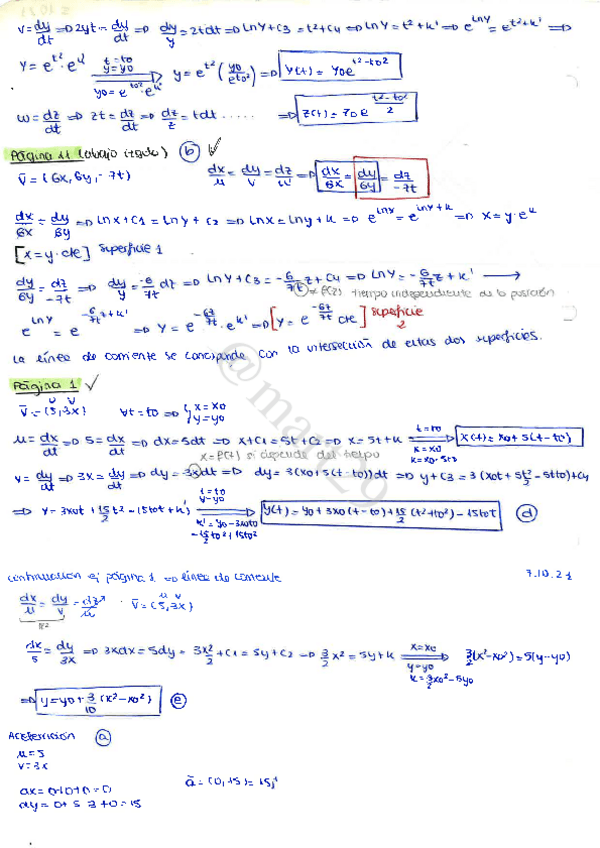 v = dy/dt => 2yt = dy/dt => dy/y = 2tdt => lnY + C3 = t² + C4 => lnY = t² + k' => e^lnY = e^(t²+k') =>
Y = e^t² · e^k' t=t0 y=y0 => y0 = e^t0² · e^k' y = e^t² (y0/e^t0²) => Y(t) = Y0 e^(t²-t0²)
w = dz/dt => zt = dz/dt => dz/z = tdt ...... => z(t) = z0 e^((t²-t0²)/2)
Página 11 (abajo izqda) (b) ✓
v̄ = (6x, 6y, -7t) dx/u = dy/v = dz/w => dx/6x = dy/6y = dz/-7t
dx/6x = dy/6y => lnx + C1 = lny + C2 => lnx = lny + k => e^lnx = e^(lny+k) => x = y·e^k
[x = y·cte] superficie 1
dy/6y = dz/-7t => dy/y = -6/7t dz => lnY + C3 = -6/7t z + C4 => lnY = -6/7t z + k' →
≠ f(z) tiempo independiente de la posición
e^lnY = e^(-6/7t z + k') => Y = e^(-6z/7t) · e^k' => [Y = e^(-6z/7t) cte] superficie 2
La línea de corriente se corresponde con la intersección de estas dos superficies.
Página 1 ✓
u v
v̄ = (5, 3x) ∀t = t0 => { x = x0 y = y0
u = dx/dt => 5 = dx/dt => dx = 5dt => x + C1 = 5t + C2 => x = 5t + k t=t0 x=x0 k=x0-5t0 => x(t) = x0 + 5(t-t0)
x = f(t) sí depende del tiempo
v = dy/dt => 3x = dy/dt => dy = 3xdt => dy = 3(x0 + 5(t-t0))dt => y + C3 = 3(x0t + 5t²/2 - 5t t0) + C4
=> y = 3x0t + 15/2 t² - 15t0t + k' t=t0 y=y0 k' = y0 - 3x0t0 - 15/2 t0² + 15t0² => y(t) = y0 + 3x0(t-t0) + 15/2 (t²+t0²) - 15t0t (d)
continuación ej página 1 => línea de corriente 7.10.21
dx/u = dy/v = dz/w v̄ = (5, 3x)
dx/5 = dy/3x => 3xdx = 5dy => 3x²/2 + C1 = 5y + C2 => 3/2 x² = 5y + k x=x0 y=y0 k=3/2 x0² - 5y0 3/2 (x²-x0²) = 5(y-y0)
=> y = y0 + 3/10 (x²-x0²) (e)
Aceleración (a)
u = 5
v = 3x
ax = 0+0+0 = 0 ā = (0, 15) = 15j
ay = 0 + 5·3 + 0 = 15
@mart29